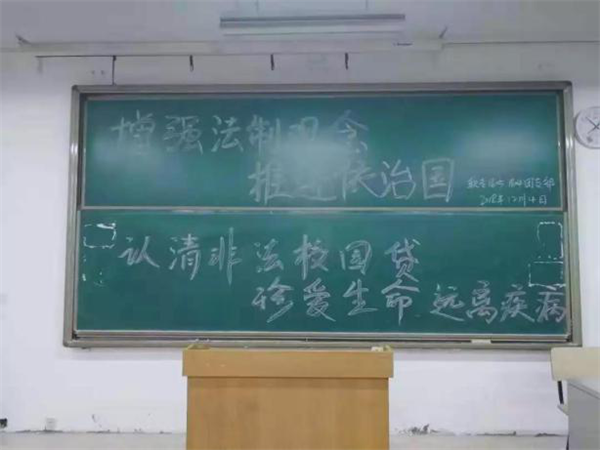 增强法制观念
推进依法治国
2018年12月4日
认清非法校园贷
珍爱生命 远离疾病